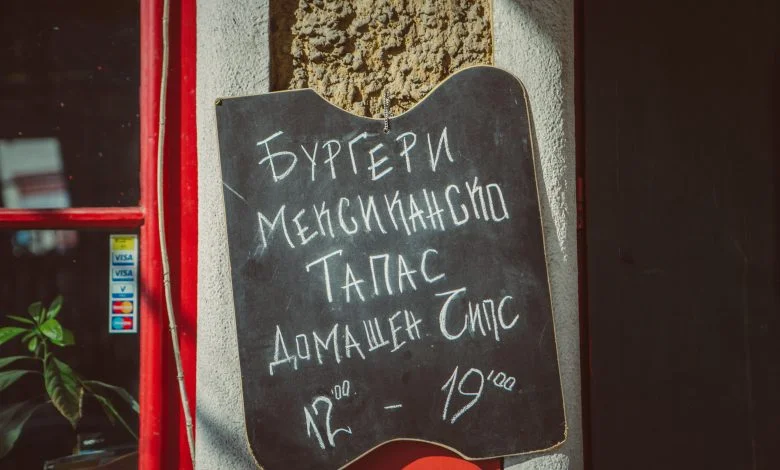 БУРГЕРИ
МЕКСИКАНСКО
ТАПАС
ДОМАШЕН ЧИПС
12'00 - 19'00
VISA
VISA
V